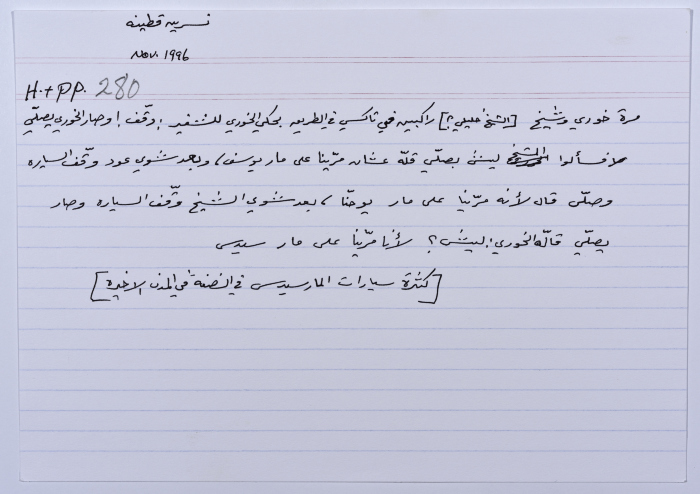 نسرين قطينه
Nov. 1996
H.+PP. 280
مرة خوري وشيخ [الشيخ خليلي؟] راكبين في تاكسي في الطريق بحكي الخوري للشفير: وقّف! وصار الخوري يصلّي
فسألوا الشيخ ليش بصلّي قلّه عشان مرّينا على مار يوسف، وبعد شوي عود وقّف السياره
وصلّى قال لأنه مرّينا على مار يوحنّا، بعد شوي الشيخ وقّف السياره وصار
يصلّي قالّه الخوري: ليش؟ لأنا مرّينا على مار سيدس
[كثرة سيارات المارسيدس في الضفة في المدن الاخيرة]